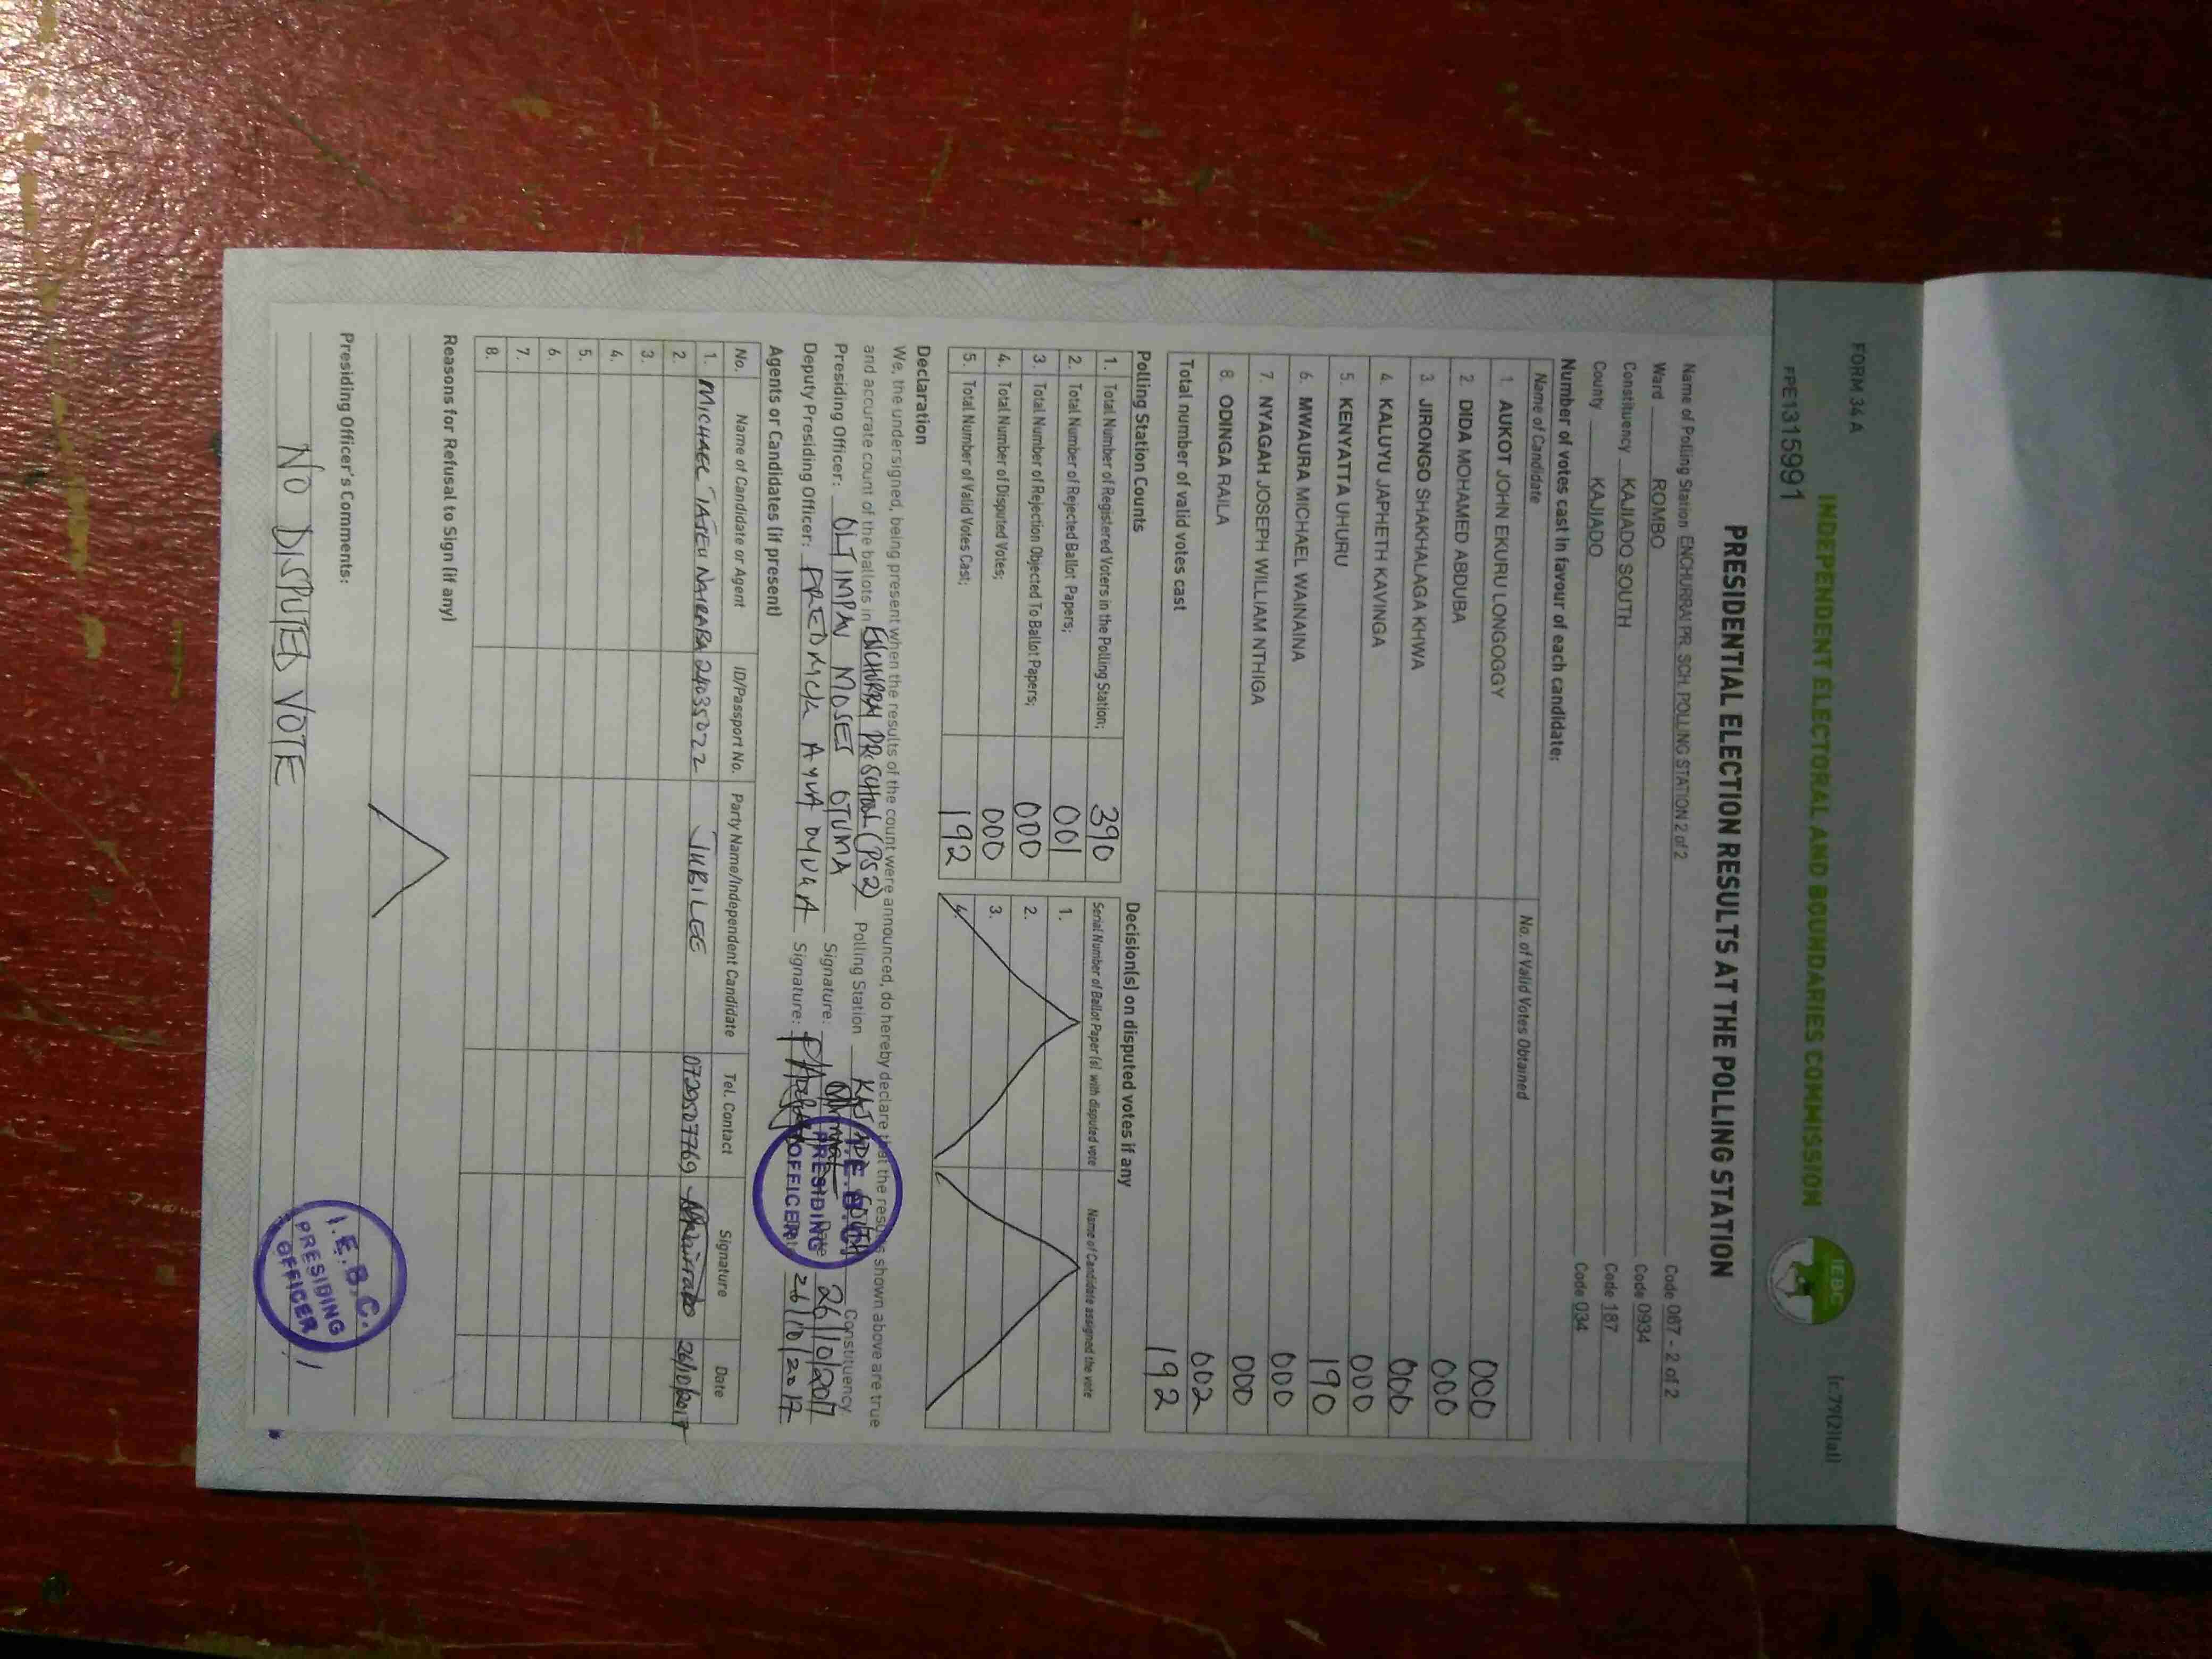 FORM 34 A
(r.79(2)(a))
INDEPENDENT ELECTORAL AND BOUNDARIES COMMISSION
IEBC
FPE1315991
PRESIDENTIAL ELECTION RESULTS AT THE POLLING STATION
Name of Polling Station ENCHURRAI PR. SCH. POLLING STATION 2 of 2 Code 067 - 2 of 2
Ward ROMBO Code 0934
Constituency KAJIADO SOUTH Code 187
County KAJIADO Code 034
Number of votes cast in favour of each candidate:
Name of Candidate No. of Valid Votes Obtained
1. AUKOT JOHN EKURU LONGOGGY 000
2. DIDA MOHAMED ABDUBA 000
3. JIRONGO SHAKHALAGA KHWA 000
4. KALUYU JAPHETH KAVINGA 000
5. KENYATTA UHURU 190
6. MWAURA MICHAEL WAINAINA 000
7. NYAGAH JOSEPH WILLIAM NTHIGA 000
8. ODINGA RAILA 002
Total number of valid votes cast 192
Polling Station Counts
1. Total Number of Registered Voters in the Polling Station; 390
2. Total Number of Rejected Ballot Papers; 001
3. Total Number of Rejection Objected To Ballot Papers; 000
4. Total Number of Disputed Votes; 000
5. Total Number of Valid Votes Cast; 192
Decision(s) on disputed votes if any
Serial Number of Ballot Paper(s) with disputed vote Name of Candidate assigned the vote
1.
2.
3.
4.
Declaration
We, the undersigned, being present when the results of the count were announced, do hereby declare that the results shown above are true
and accurate count of the ballots in ENCHURRAI PR SCHOOL (PS 2) Polling Station KAJIADO SOUTH Constituency
Presiding Officer: OLTIMPAN MOSES OTUMA Signature: Date 26/10/2017
Deputy Presiding Officer: FREDRICK AYUA Signature: 26/10/2017
I.E.B.C.
PRESIDING
OFFICER
Agents or Candidates (if present)
No. Name of Candidate or Agent ID/Passport No. Party Name/Independent Candidate Tel. Contact Signature Date
1. MICHAEL TATEU NAIRABA 24035022 JUBILEE 0729507769 26/10/2017
2.
3.
4.
5.
6.
7.
8.
Reasons for Refusal to Sign (if any)
Presiding Officer's Comments:
NO DISPUTED VOTE
I.E.B.C.
PRESIDING
OFFICER